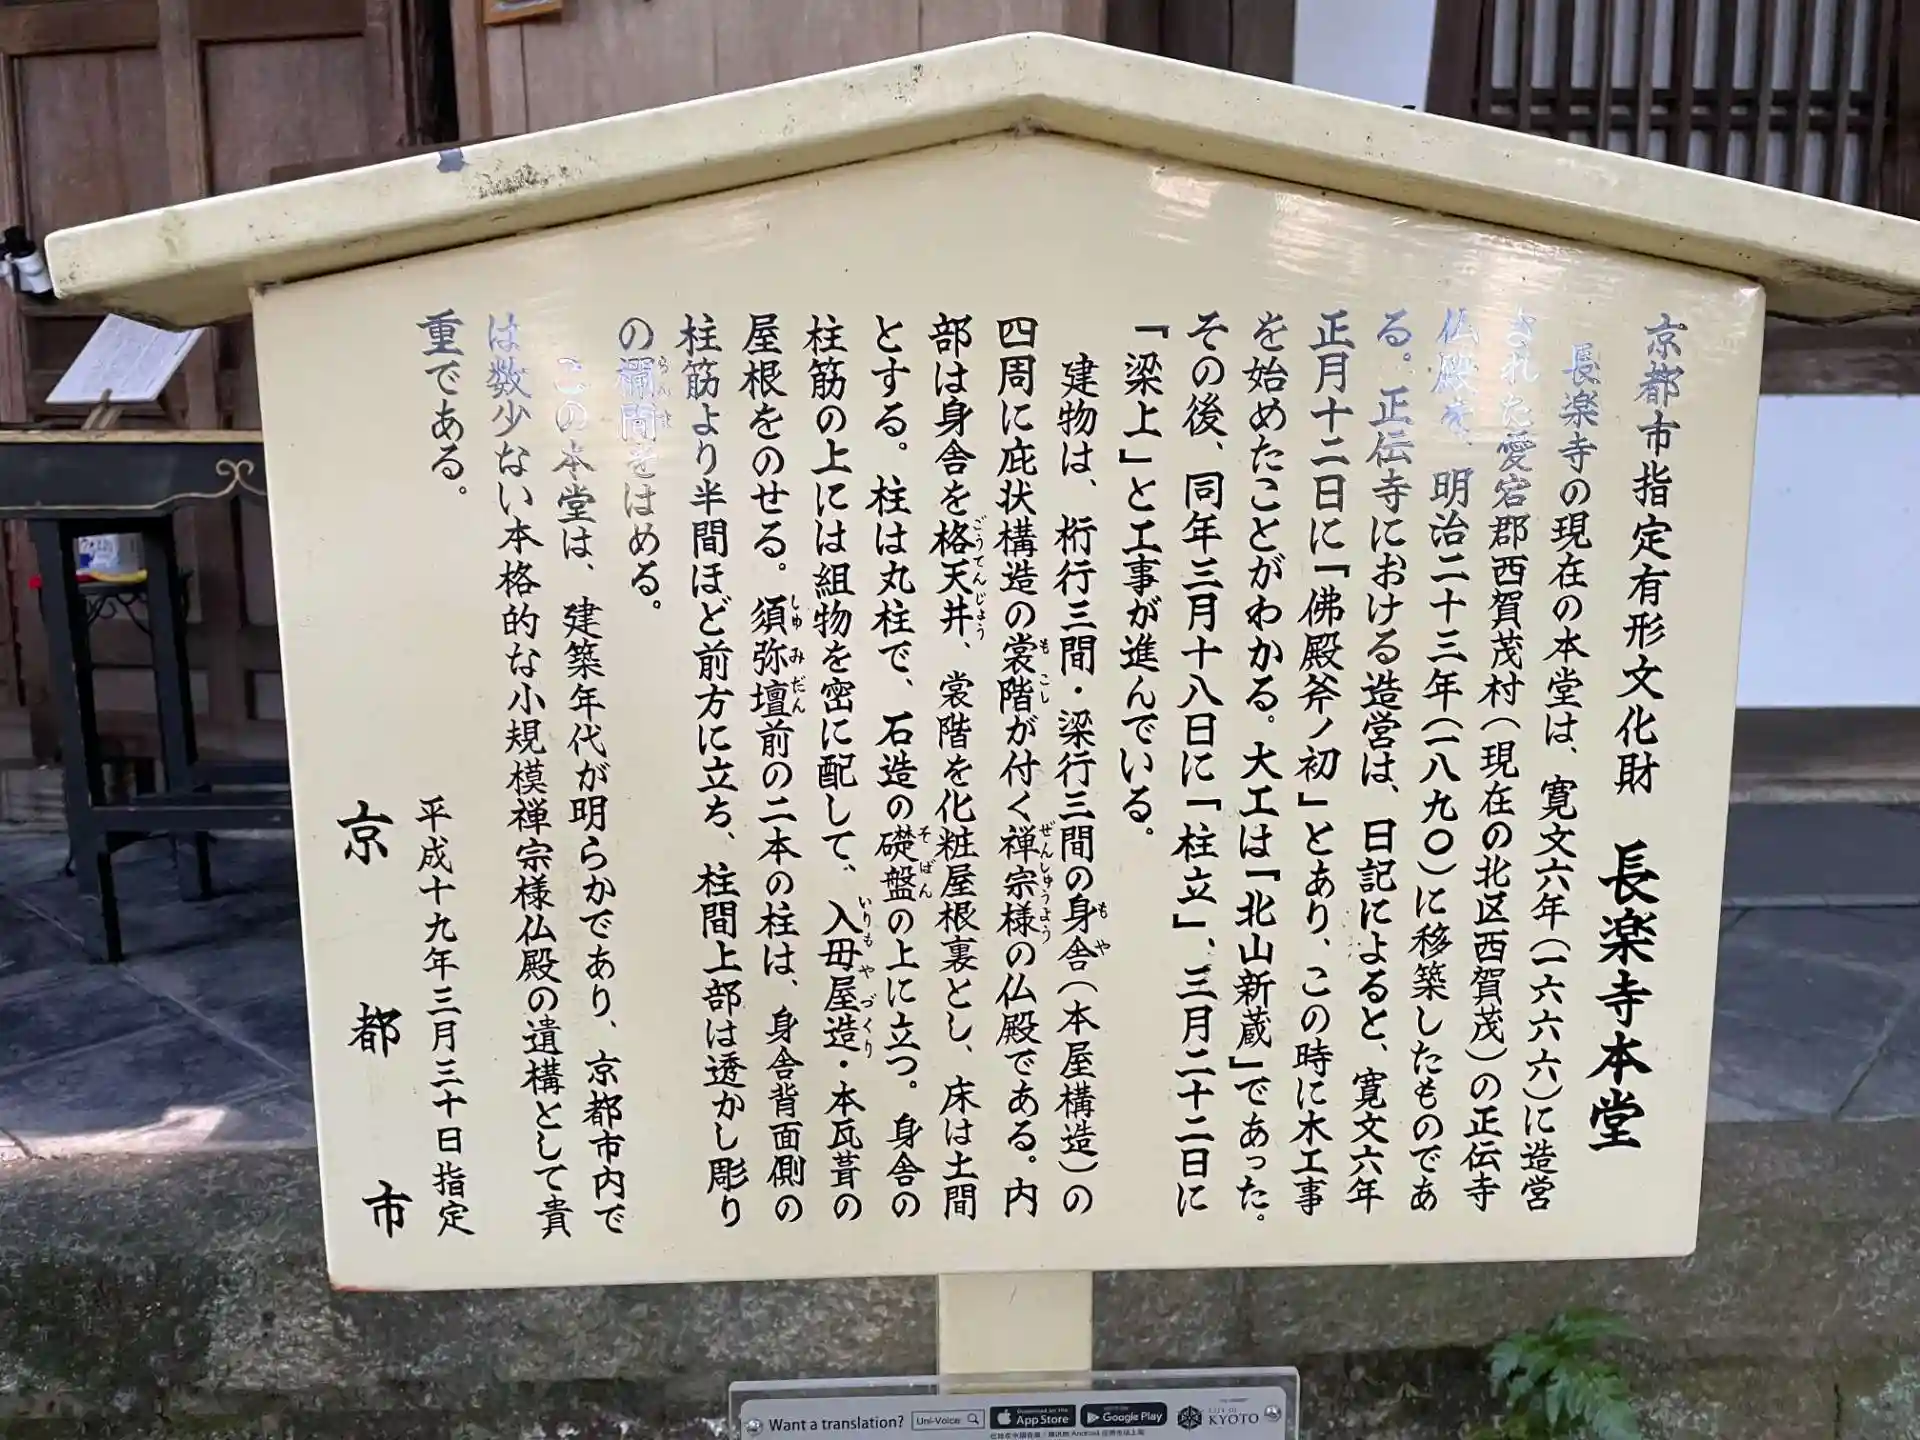 京都市指定有形文化財　長楽寺本堂
長楽寺の現在の本堂は、寛文六年(一六六六)に造営
された愛宕郡西賀茂村(現在の北区西賀茂)の正伝寺
仏殿を、明治二十三年(一八九〇)に移築したものであ
る。正伝寺における造営は、日記によると、寛文六年
正月十二日に「佛殿斧ノ初」とあり、この時に木工事
を始めたことがわかる。大工は「北山新蔵」であった。
その後、同年三月十八日に「柱立」、三月二十二日に
「梁上」と工事が進んでいる。
建物は、桁行三間・梁行三間の身舎(本屋構造)の
もや
四周に庇状構造の裳階が付く禅宗様の仏殿である。内
もこし ぜんしゅうよう
部は身舎を格天井、裳階を化粧屋根裏とし、床は土間
ごうてんじょう
とする。柱は丸柱で、石造の礎盤の上に立つ。身舎の
そばん
柱筋の上には組物を密に配して、入母屋造・本瓦葺の
いりもやづくり
屋根をのせる。須弥壇前の二本の柱は、身舎背面側の
しゅみだん
柱筋より半間ほど前方に立ち、柱間上部は透かし彫り
の欄間をはめる。
らんま
この本堂は、建築年代が明らかであり、京都市内で
は数少ない本格的な小規模禅宗様仏殿の遺構として貴
重である。
平成十九年三月三十日指定
京都市
Want a translation? Uni-Voice App Store Google Play CITY OF KYOTO